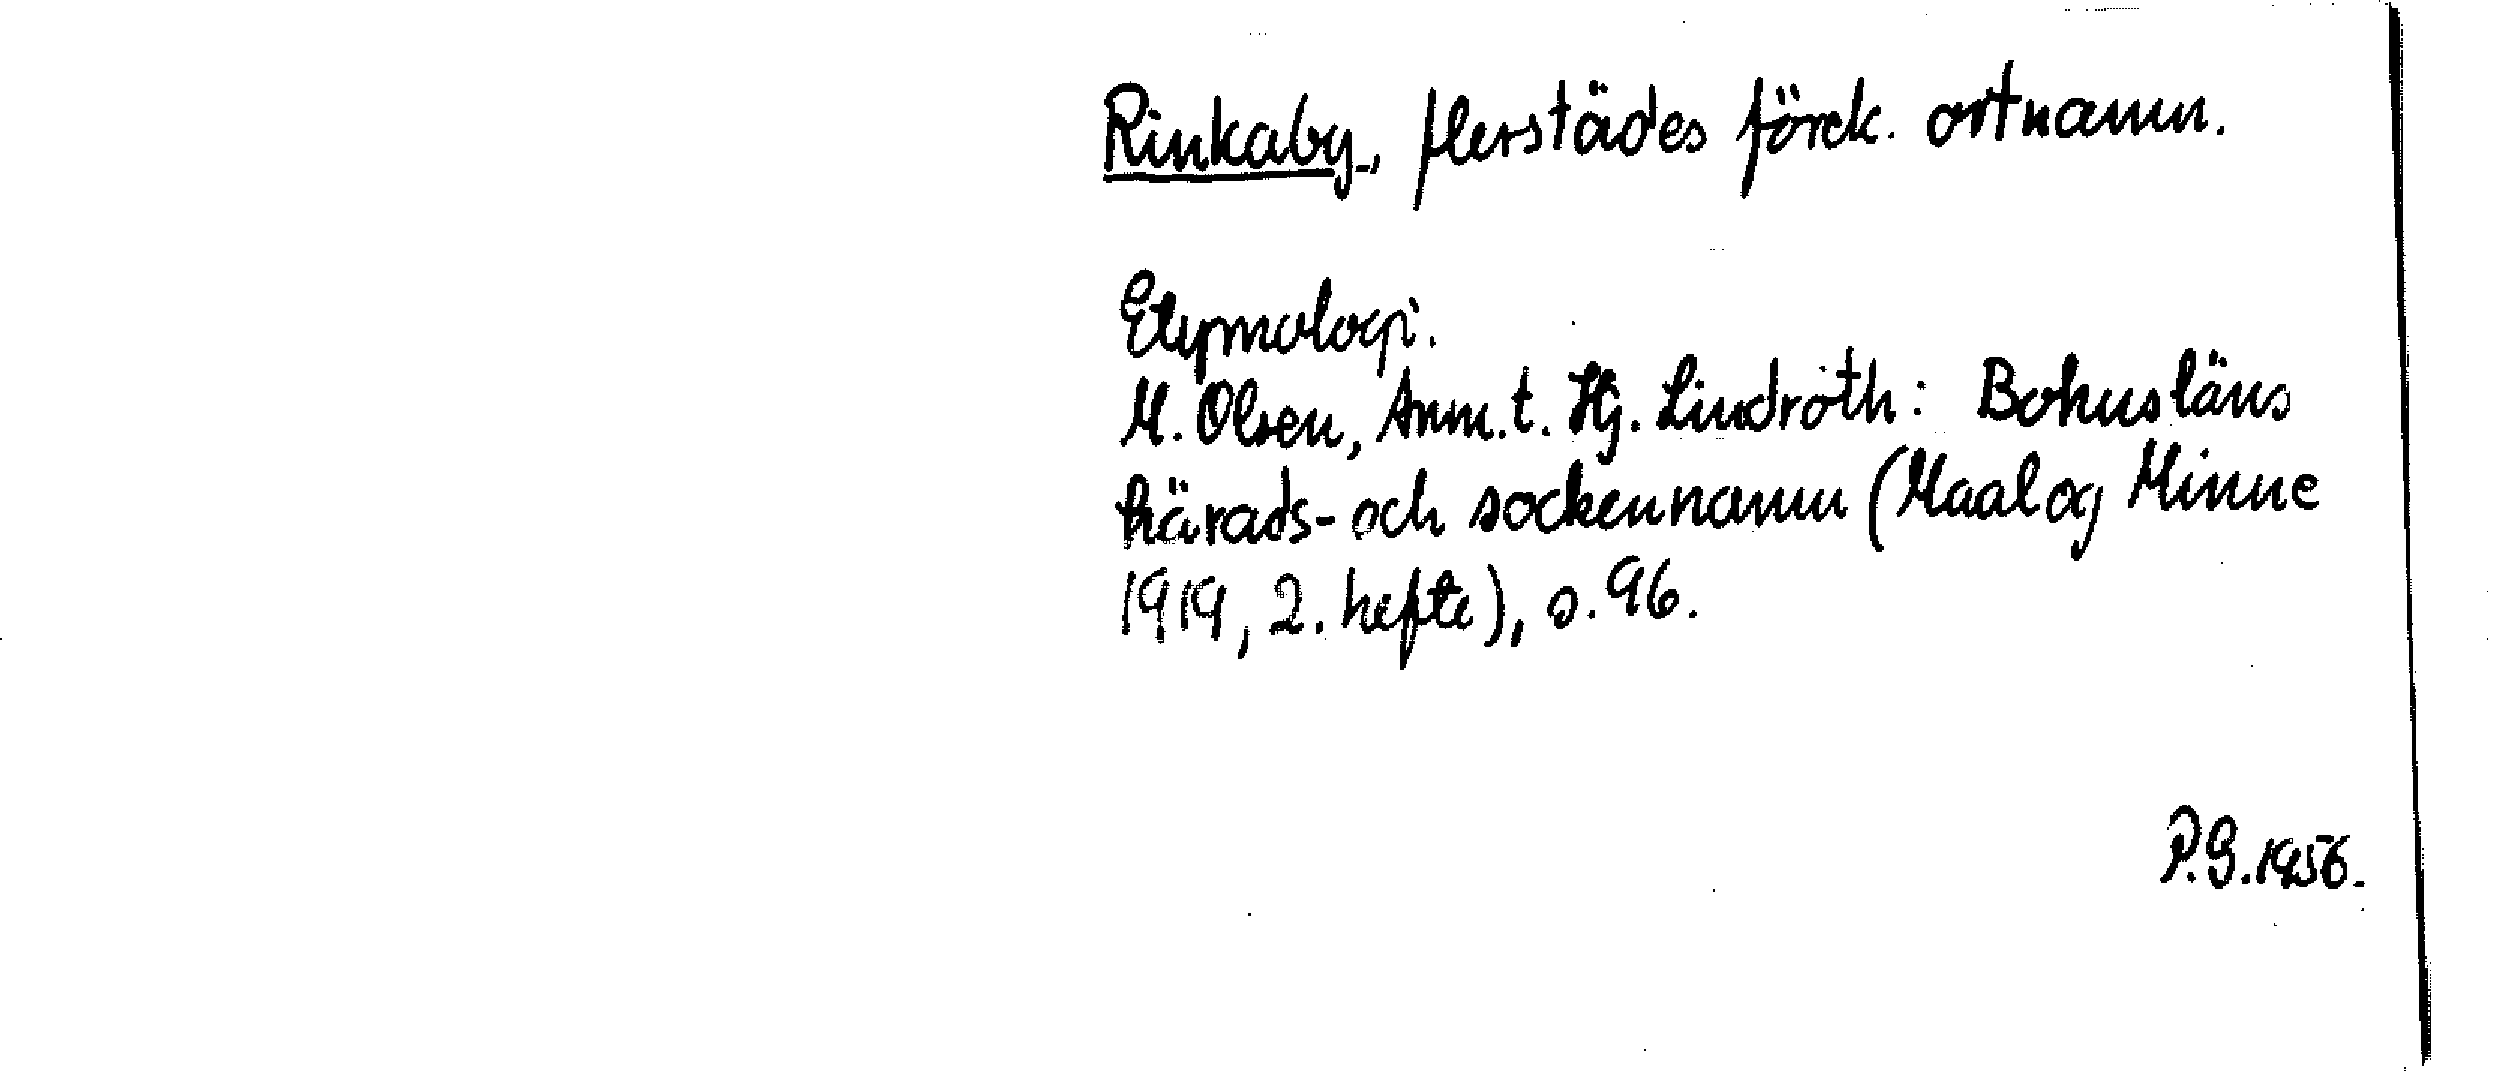 Rinkaby, flerstädes förek. ortnamn.
Etymologi.
M. Olsen, Anm. t. Hj. Lindroth: Bohusläns
härads- och sockennamn (Maal og Minne
1919, 2. hefte), s. 96.
P.G. 1956.